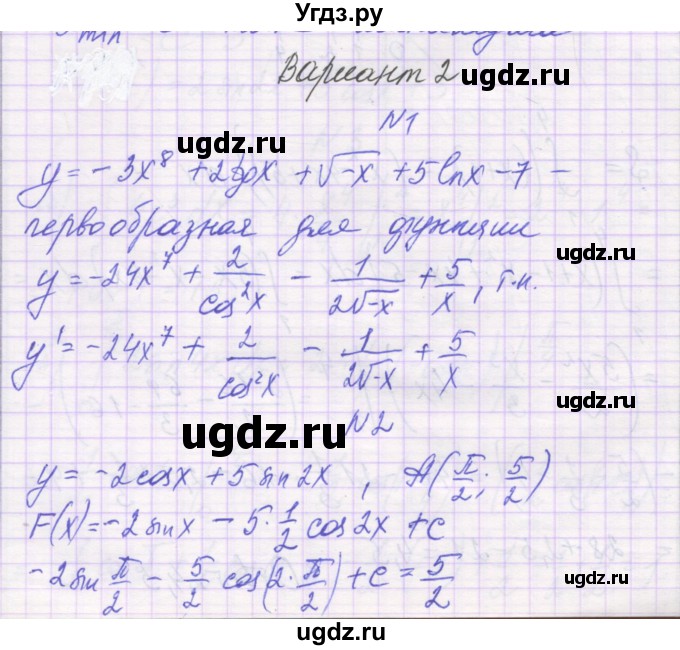 Угдз.ру
Вариант 2
ugdz.ru
N1
ugdz.ru
y = -3x⁸ + 2tgx + √-x + 5lnx - 7 -
первообразная для функции
ugdz.ru
y = -24x⁷ + 2/cos²x - 1/2√-x + 5/x, т.к.
ugdz.ru
y' = -24x⁷ + 2/cos²x - 1/2√-x + 5/x
ugdz.ru
ugdz.ru
N2
y = -2cosx + 5sin2x, A(π/2; 5/2)
F(x) = -2sinx - 5·1/2 cos2x + c
ugdz.ru
ugdz.ru
-2sin π/2 - 5/2 cos(2·π/2) + c = 5/2
ugdz.ru